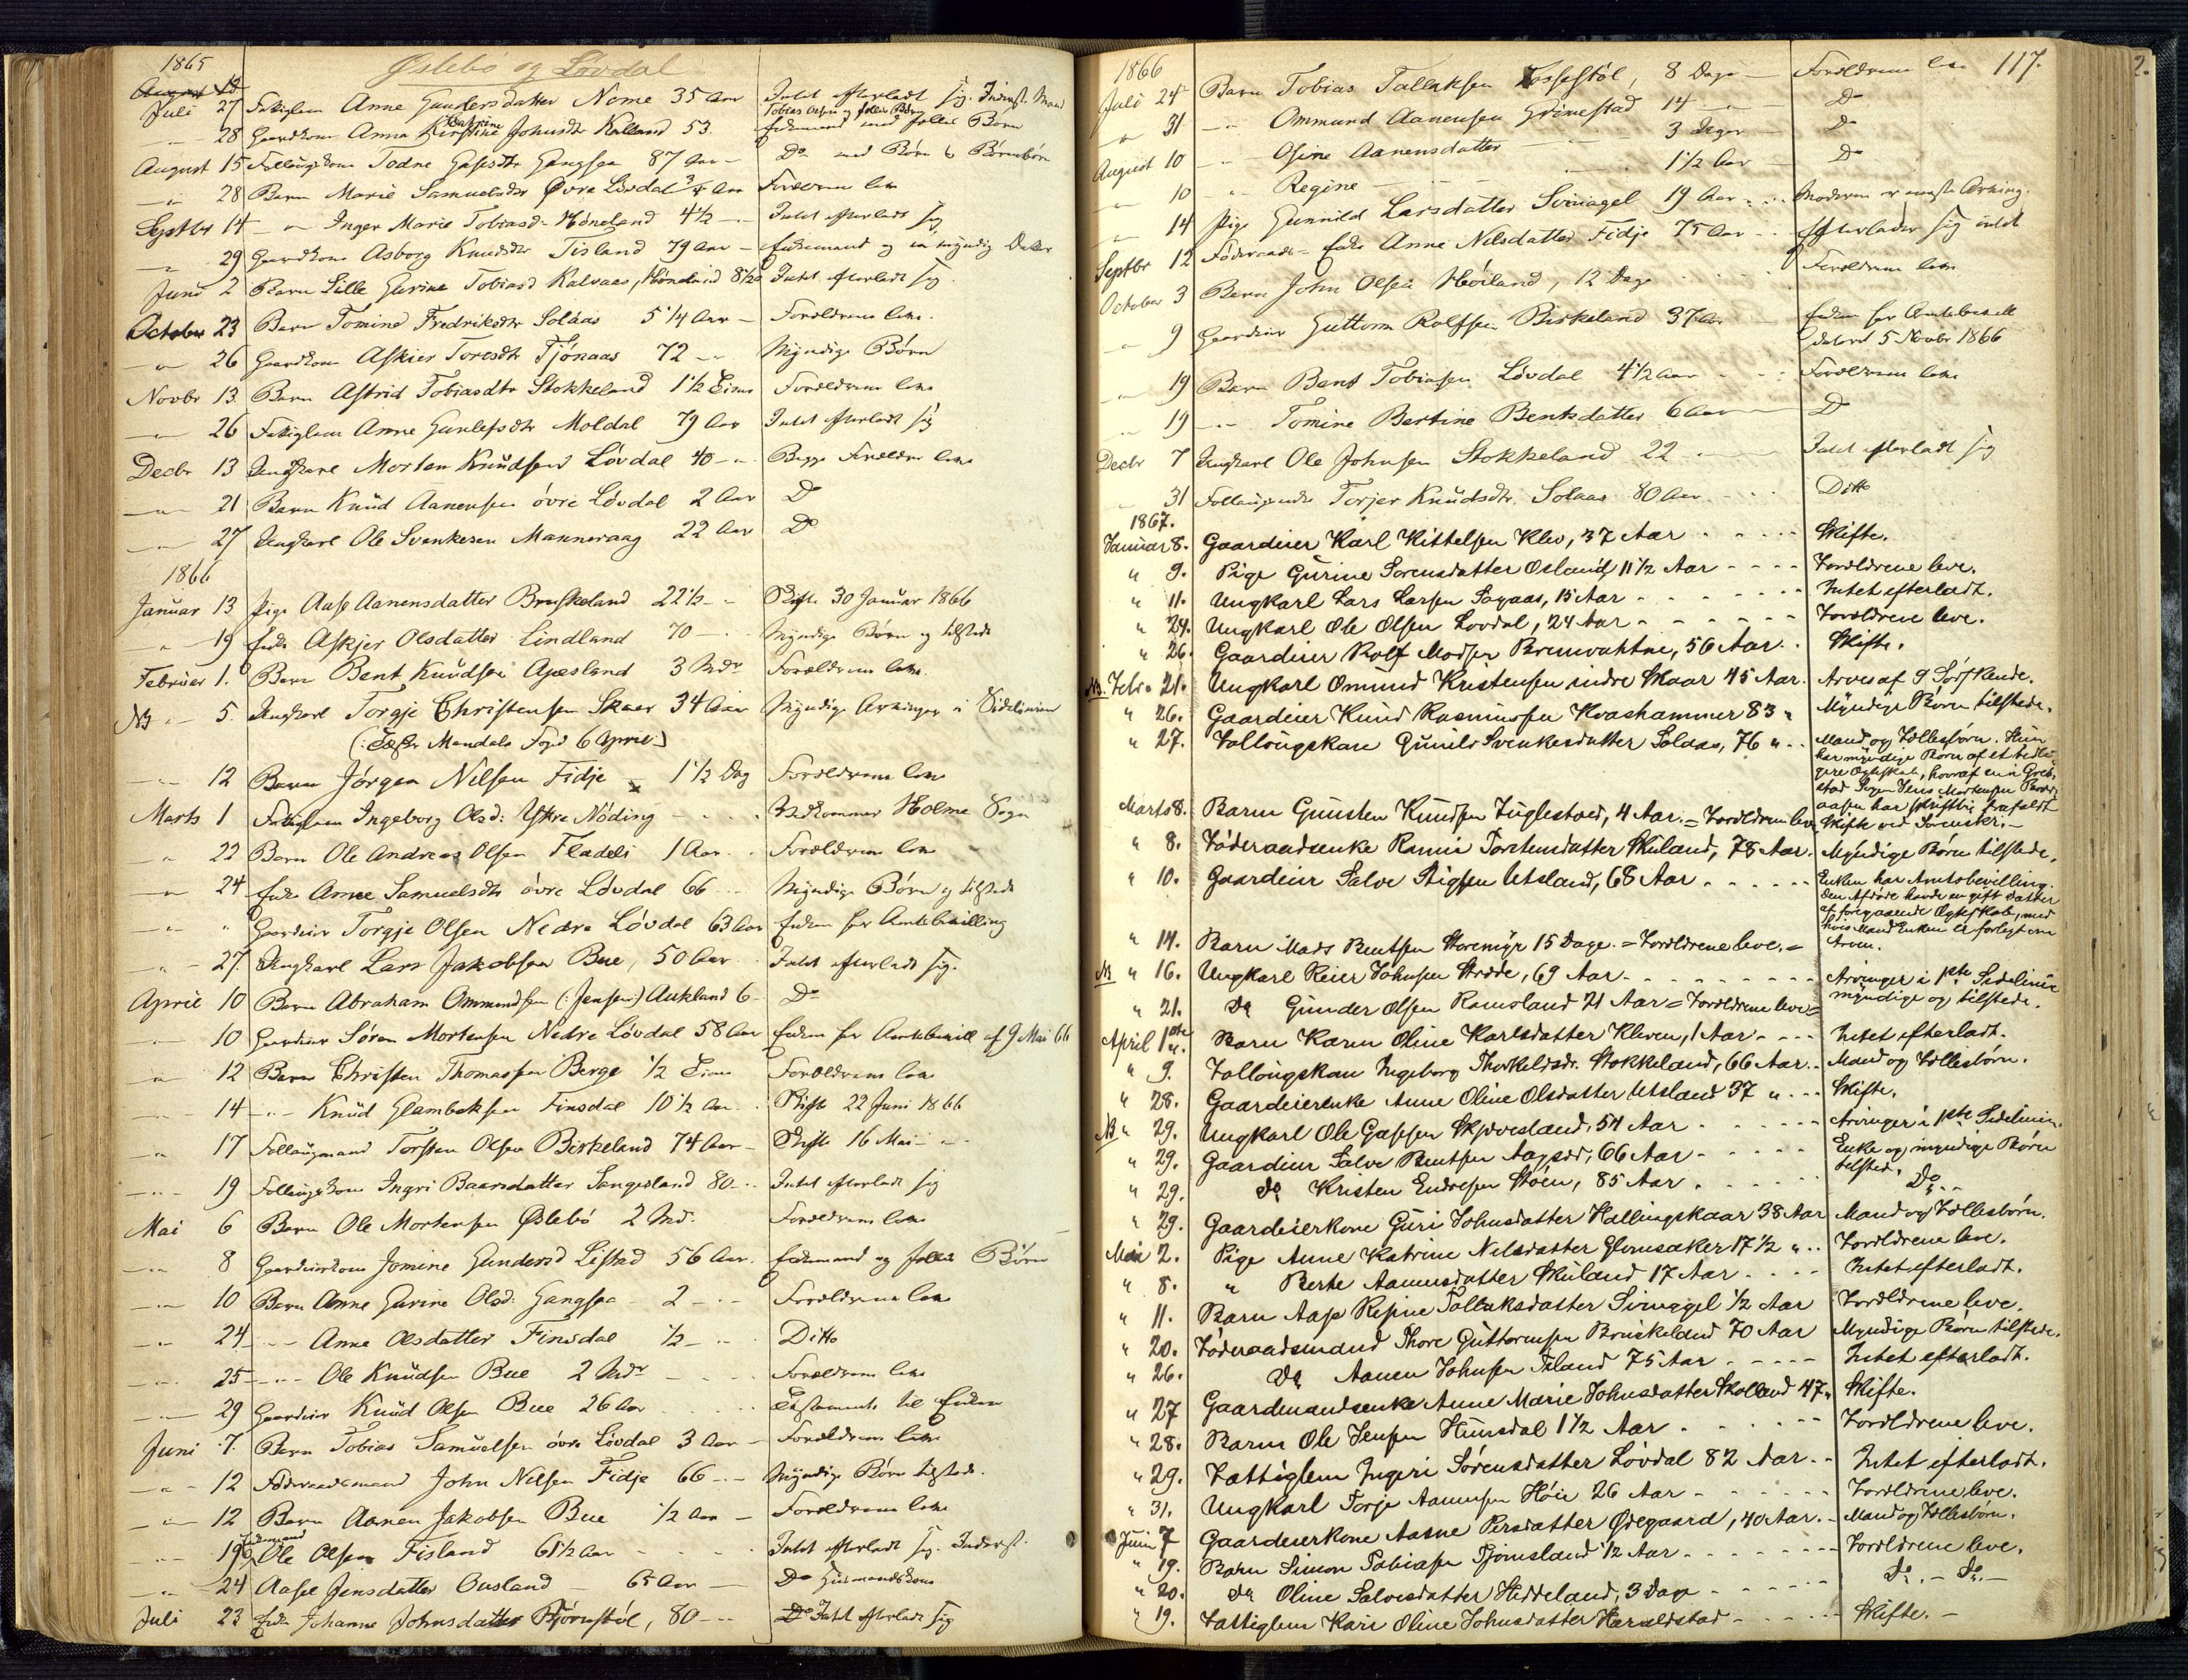 1865
Øslebö og Lövdal
Juli 27 Fattiglem Anne Gundersdatter Nome 35 Aar Intet efterladt sig. Inderst. Mand
Tobias Olsen og fælles Børn
" 28 Gaardkone Anna Kirstine Johnsdtr Kalland 53. Enkemand med fælles Børn
Cathrine
August 15 Follaugskone Todne Gasesdtr Gangsaa 87 Aar - Do med Børn & Børnebørn
" 28 Barn Marie Samuelsdtr Øvre Lövdal 3/4 Aar Forældrene leve
Septbr 14 - " - Inger Marie Tobiasd. Höneland 4 1/2 - " Intet efterladt sig
" 29 Gaardkone Asborg Knudsdtr Tisland 79 Aar - Enkemand og en myndig Datter
Juni 2 Barn Lille Gurine Tobiasd Kalvaas, Höneland 8 1/2 Intet efterladt sig.
October 23 Barn Tomine Fredriksdtr Solaas 5 1/4 Aar - Forældrene leve.
" 26 Gaardkone Askier Toresdtr Tjönaas 72 - " Myndige Børn
Novbr 13. Barn Astrid Tobiasdtr Stokkeland 1 1/2 Time Forældrene leve
" 26 Fattiglem Anne Gunlefsdtr Moldal 79 Aar Intet efterladt sig
Decbr 13 Ungkarl Morten Knudsen Lövdal 40 - " Begge Forældre leve
" 21 Barn Knud Aanensen övre Lövdal 2 Aar Do
" 27 Ungkarl Ole Svenkesen Manneraag 22 Aar Do
1866
Januar 13 Pige Aase Aanensdatter Bruskeland 22 1/2 - " Skifte 30 Januar 1866
" 19 Enke Askjer Olsdatter Lindland 70 - " Myndige Børn og tilstede
Februer 1. Barn Bent Knudsen Apesland 3 Mdr Forældrene leve.
NB " 5. Ungkarl Torgje Christensen Skaar 34 Aar Myndige Arvinger i Sidelinien
(: Mandals Foged 6 April)
" 12 Barn Jörgen Nilsen Fidje 1 1/2 Dag Forældrene leve
Marts 1 Fattiglem Ingeborg Olsd: Ystre Nöding - " . Vedkommer Holme Sogn
" 22 Barn Ole Andreas Olsen Fladeli 1 Aar . Forældrene leve
" 24 Enke Anne Samuelsdtr övre Lövdal 66 - " Myndige Børn og tilstede
" " Gaardeier Torgje Olsen Nedre Lövdal 63 Aar Enken har Amtsbevilling
" 27. Ungkarl Lars Jakobsen Bue, 50 Aar . Intet efterladt sig.
April 10 Barn Abraham Ommundsen (: Jensen:) Aukland 6 - Do
" 10 Gaardeier Sören Mortensen Nedre Lövdal 58 Aar Enken har Amtsbevill af 9 Mai 66
" 12 Barn Christen Thomassen Berge 1/2 Time Forældrene leve
" 14 - " - Knud Glambeksen Finsdal 10 1/2 Aar . Skifte 22 Juni 1866
" 17 Follaugmand Torsten Olsen Birkeland 74 Aar - Skifte 16 Mai - "
" 19 Follaugskone Ingri Baarsdatter Sangesland 80 - " Intet efterladt sig
Mai 6 Barn Ole Mortensen Øslebö 2 Md. Forældrene leve
" 8 Gaardeierkone Jomine Gundersd Lestad 56 Aar. Enkemand og fælles Børn
" 10 Barn Anne Gurine Olsd: Gangsaa - 2 - " Forældrene leve
" 24 - " - Anne Olsdatter Finsdal 1/2 - " Ditto
" 25 - " - Ole Knudsen Bue 2 Mdr Forældrene leve
" 29 Gaardeier Knud Olsen Bue 26 Aar Testamente til Enken
Juni 7. Barn Tobias Samuelsen övre Lövdal 3 Aar - Forældrene leve
" 12 Föderaadsmand John Nilsen Fidje 66 - " Myndige Børn tilstede.
" 12 Barn Aanen Jakobsen Bue 1/2 Aar - Forældrene leve
" 19 Ole Olsen Fisland 61 1/2 Aar - Intet efterladt sig. Inderst.
" 24 Aase Jensdatter Ousland - 65 Aar - Do Husmandskone
Juli 23 Enke Johanne Johnsdatter Bjørnstöl, 80 - " Intet efterladt sig
117.
1866
Juli 24 Barn Tobias Tallaksen Fossestöl, 8 Dage - Forældrene leve
" 31 - " Ommund Aanensen Grimestad 14 - " Do
August 10 - " Osine Aanensdatter - " 3 Dage Do
" 10 " Regine - " - 1 1/2 Aar Do
" 14 Pige Gunnild Larsdatter Svinagel 19 Aar . . . Moderen er eneste Arving.
Septbr 12 Föderaads-Enke Anne Nilsdatter Fidje 75 Aar - - Efterlader sig intet
October 3 Barn John Olsen Höiland, 12 Dage Forældrene leve
" 9 Gaardeier Guttorm Rolfsen Birkeland 37 Aar Enken har Amtsbevill
dateret 5 Novbr 1866
" 19 Barn Bent Tobiasen Lövdal 4 1/2 Aar - - Forældrene leve
" 19 - " Tomine Bertine Bentsdatter 6 Aar Do
Decbr 7 Ungkarl Ole Johnsen Stokkeland 22 - " Intet efterladt sig
" 31 Follaugsenke Torjer Knudsdtr. Solaas 80 Aar - - Ditto
1867.
Januar 8. Gaardeier Karl Kittelsen Klev, 37 Aar - - - - Skifte.
" 9. Pige Gurine Sorensdatter Osland, 11 1/2 Aar - - - - Forældrene leve.
" 11. Ungkarl Lars Larsen Sagaas, 15 Aar - - - - Intet efterladt.
" 24. Ungkarl Ole Olsen Lovdal, 24 Aar - - - - Forældrene leve.
" 26. Gaardeier Rolf Madsen Brunvahtne, 56 Aar. . Skifte.
NB. Febr. 21. Ungkarl Omund Kristensen indre Skaar 45 Aar. Arves af 9 Sødskende.
" 26. Gaardeier Knud Rasmussen Kvashammer 83 " Myndige Børn tilstede.
" 27. Follougskone Gunild Svenkesdatter Solaas, 76 " . . Mand og Fællesbørn. Hun
har myndige Børn af et tidli-
gere Ægteskab, hvoraf en i Greb-
stad Sogn Jens Mortensen
aasen har skriftlig frafaldt
Marts 8. Barn Gunsten Knudsen Fuglestved, 4 Aar. = Forældrene leve Skifte ved Sorenskr. -
" 8. Föderaadsenke Ranni Torstensdatter Skuland, 78 Aar. Myndige Børn tilstede.
" 10. Gaardeier Salve Stigsen Utsland, 68 Aar . . . . . Enken har Amtsbevilling.
Den Afdøde havde en gift Datter
af foregaaende Ægteskab, med
hvis Mand Enken er forligt om
Arven.
" 14. Barn Mads Bentsen Storemyr 15 Dage. = Forældrene leve. =
NB " 16. Ungkarl Reier Johnsen Stedde, 69 Aar - - - - Arvinger i 1ste Sidelinie
myndige og tilstede.
" 21. do Gunder Olsen Ramsland 21 Aar = Forældrene leve =
April 1ste Barn Karen Oline Karlsdatter Kleven, 1 Aar - - - Intet efterladt.
" 9. Follougskone Ingeborg Thorkeldsdr. Stokkeland, 66 Aar. . Mand og Fællesbørn.
" 28. Gaardeierenke Anne Oline Olsdatter Utsland 37 " . . . Skifte.
NB " 29. Ungkarl Ole Gassen Skjævesland, 54 Aar - - - - Arvinger i 1ste Sidelinien.
" 29. Gaardeier Salve Bentsen Aagsed, 66 Aar - - - - Enke og myndige Børn
tilsted.
" 29. do Kristen Endresen Støen, 85 Aar . . . . Do. -
" 29. Gaardeierkone Guri Johnsdatter Hallingskaar 38 Aar Mand og Fællesbørn.
Mai 2. Pige Anne Katrine Nilsdatter Glomsaker 17 1/2 " . . Forældrene leve.
" 8. " Berte Aanensdatter Skuland 17 Aar . . . . Intet efterladt.
" 11. Barn Aase Regine Tallaksdatter Svinaggel 1/2 Aar Forældrene leve.
" 20. Föderaadsmand Thore Guttormsen Bruskeland 70 Aar Myndige Børn tilstede.
" 26. do Aanen Johnsen Filand 75 Aar . - - - Intet efterladt.
" 27 Gaardmandsenke Anne Marie Johnsdatter Skolland 47 " Skifte.
" 28. Barn Ole Jensen Hunsdal 1 1/2 Aar . - - - Forældrene leve.
" 29. Fattiglem Ingeri Sørensdatter Løvdal 82 Aar. - Intet efterladt.
" 31. Ungkarl Torje Aanensen Høie 26 Aar - - - - Forældrene leve.
Juni 7 Gaardeierkone Aasne Persdatter Ødegaard, 40 Aar. - Mand og Fællesbørn.
" 19. Barn Simon Tobiasen Tjomsland 1/2 Aar - - - - Forældrene leve.
" 20. do Oline Salvesdatter Heddeland, 3 Dage - - - - Do. - Do. -
" 19. Fattiglem Kari Oline Johnsdatter Haraldstad - - - - Skifte. -